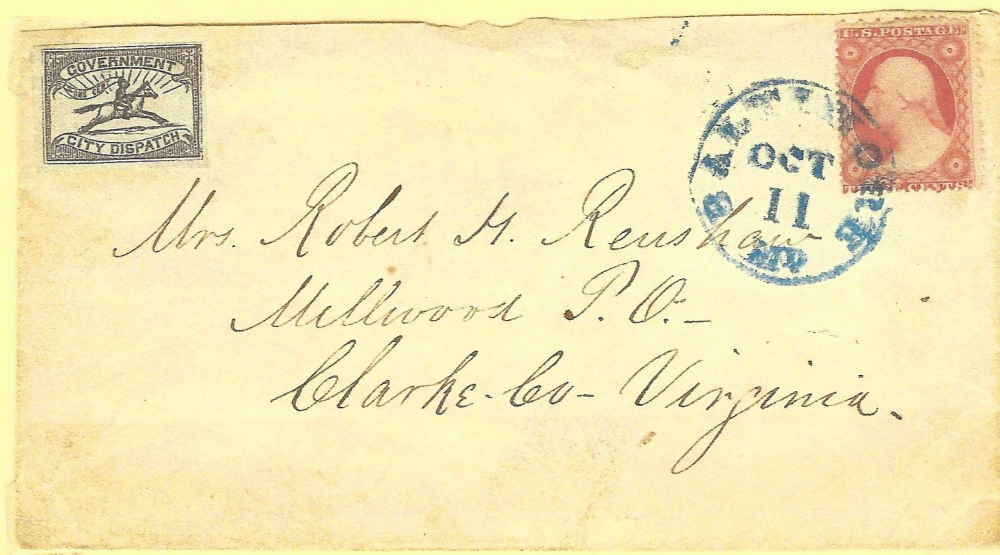 GOVERNMENT
ONE CENT
CITY DISPATCH
U.S. POSTAGE
THREE CENTS
BALTIMORE
OCT
11
MD
Mrs. Robert H. Renshaw
Millwood P.O.–
Clarke-Co– Virginia.